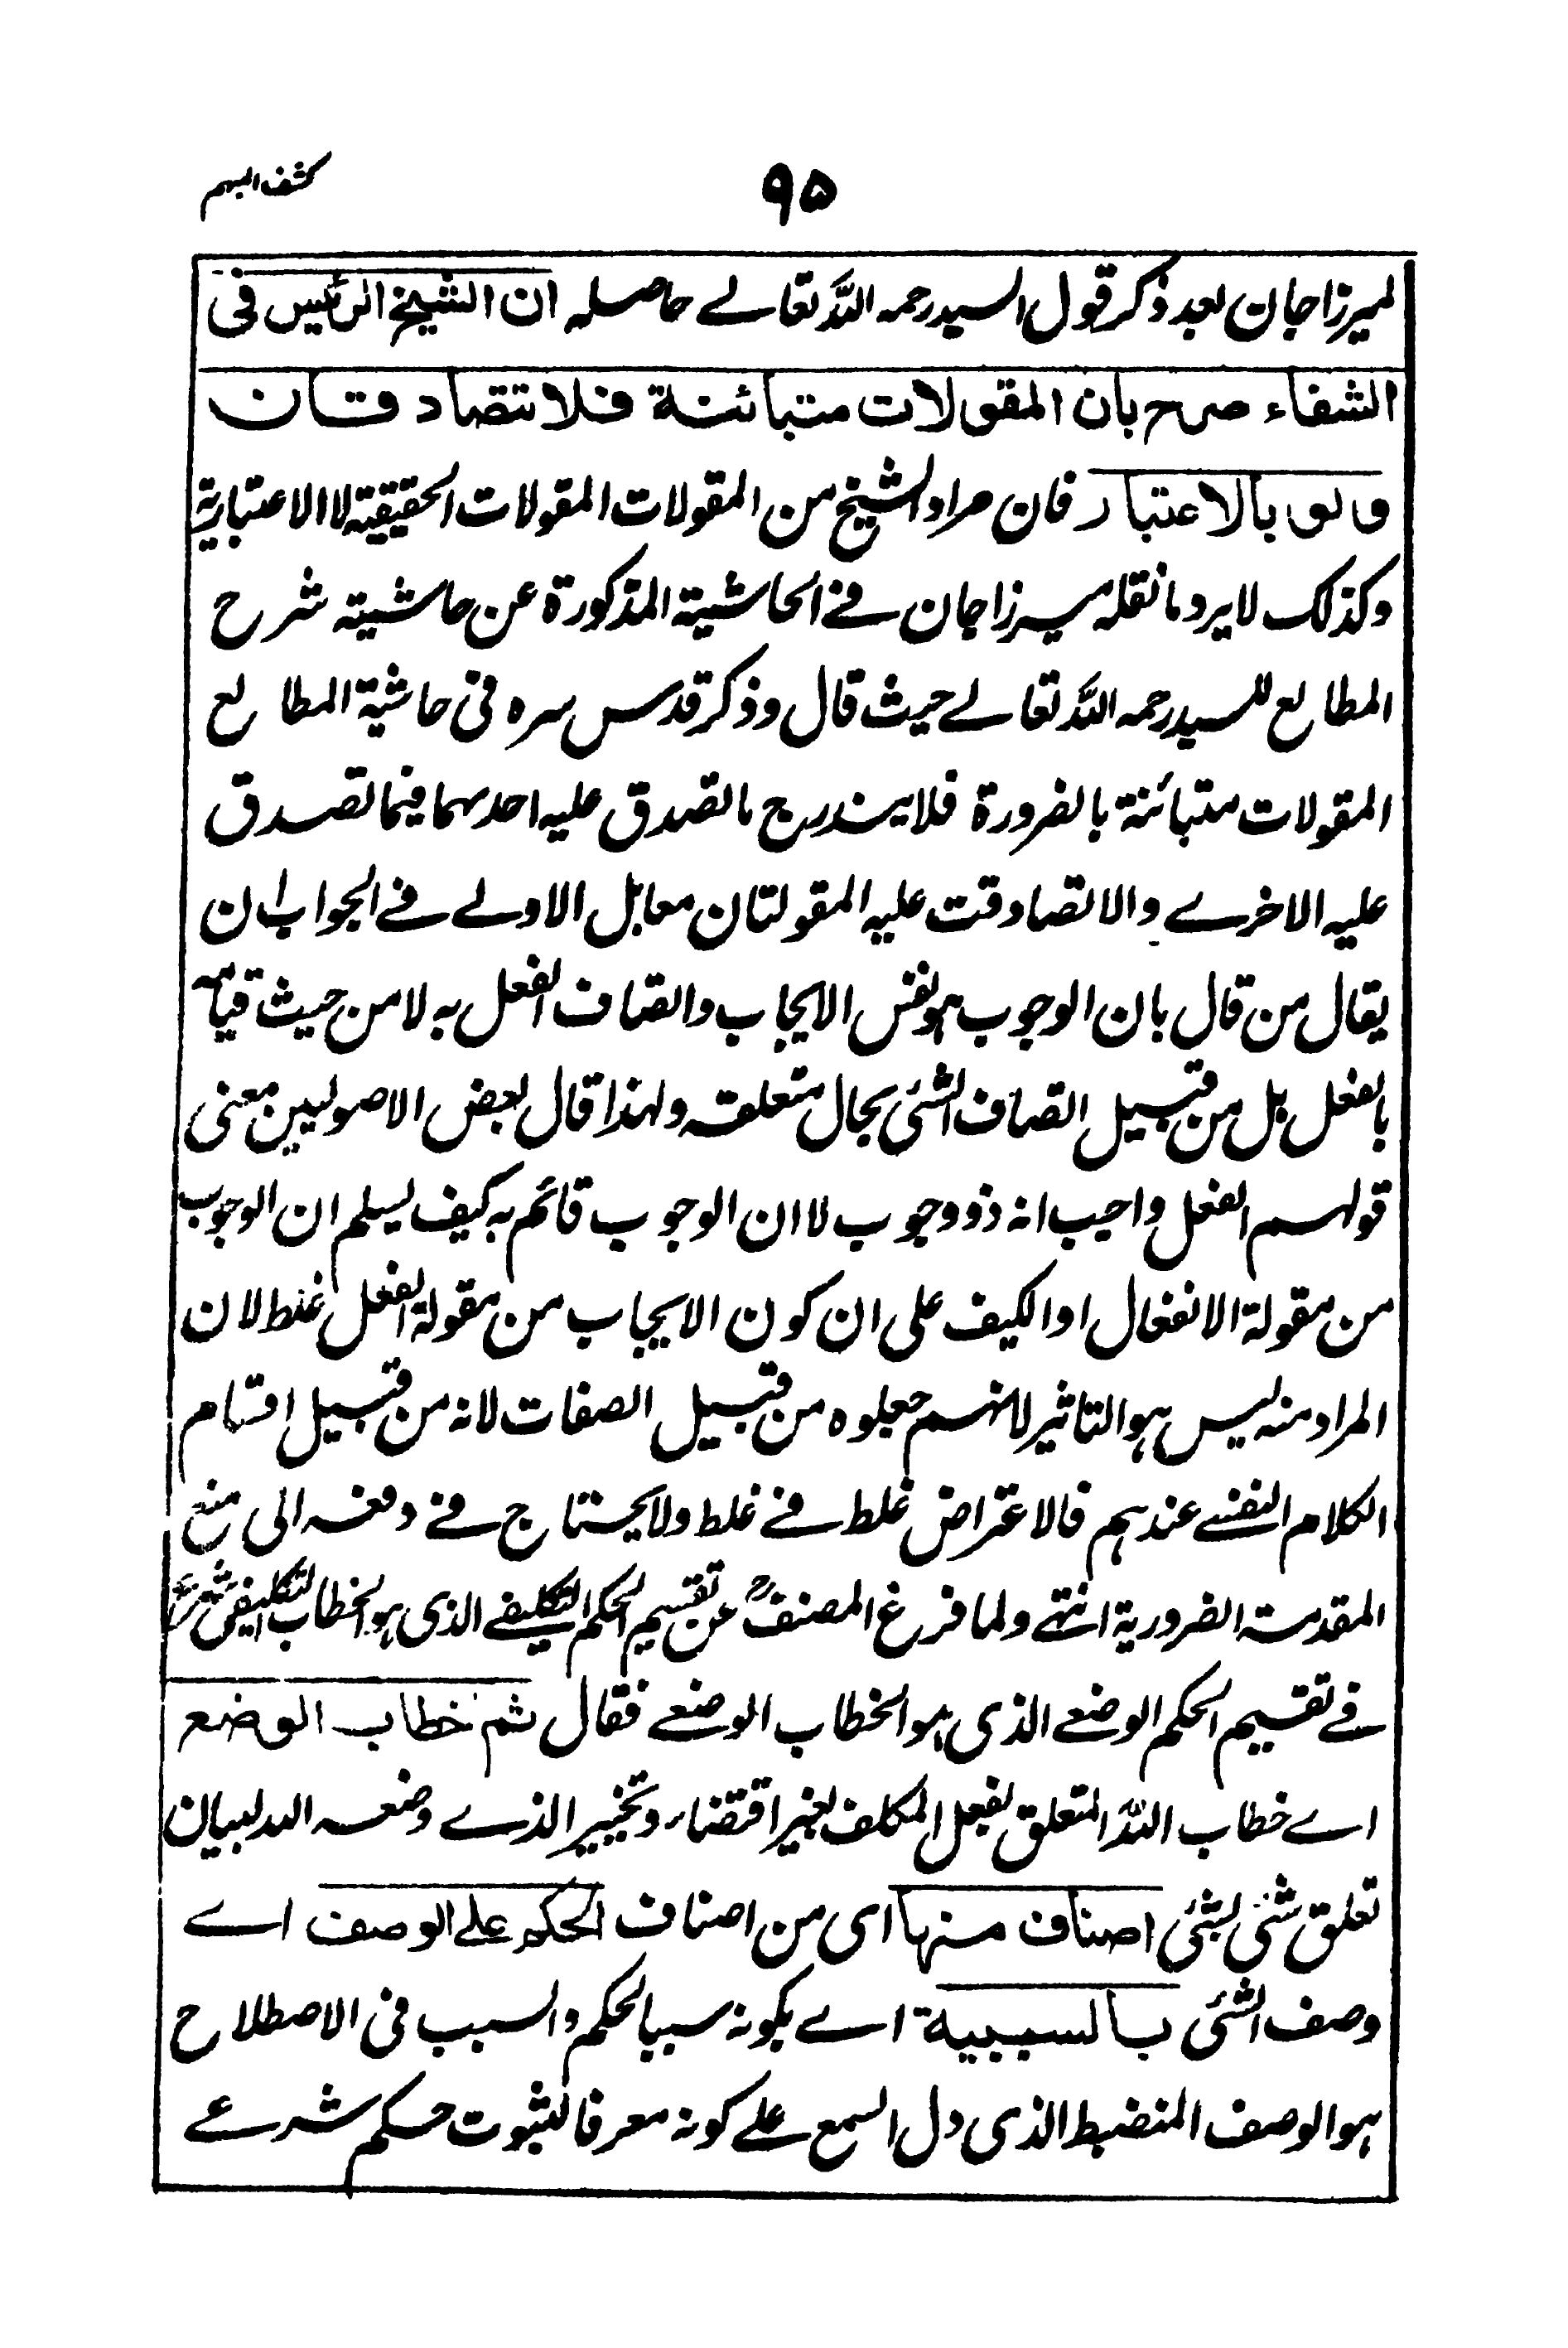 كشف المبهم
٩٥
لميرزاجان بعد ذكر قول السيد رحمه الله تعالے حاصله ان الشيخ الرئيس فى
الشفاء صرح بان المقولات متبائنة فلا تتصادقان
ولو بالاعتبار فان مراد الشيخ من المقولات المقولات الحقيقية لا الاعتبارية
وكذلك لا يرد ما نقله ميرزاجان فے الحاشية المذكورة عن حاشية شرح
المطالع للسيد رحمه الله تعالے حيث قال وذكر قدس سره فى حاشية المطالع
المقولات متبائنة بالضرورة فلا يندرج ما تصدق عليه احدىهما فيما تصدق
عليه الاخرے والا تصادقت عليه المقولتان معا بل الاولے فے الجواب ان
يقال من قال بان الوجوب هو نفس الايجاب واتصاف الفعل به لا من حيث قيامه
بالفعل بل من قبيل اتصاف الشئ بحال متعلقه ولهذا قال بعض الاصوليين معنى
قولهم الفعل واجب انه ذو وجوب لا ان الوجوب قائم به كيف يسلم ان الوجوب
من مقولة الانفعال او الكيف على ان كون الايجاب من مقولة الفعل غلط لان
المراد منه ليس هو التاثير لانهم جعلوه من قبيل الصفات لانه من قبيل اقسام
الكلام النفسے عندهم فالاعتراض غلط فے غلط ولا يحتاج فے دفعه الى منع
المقدمة الضرورية انتهے ولما فرغ المصنفؒ عن تقسيم الحكم التكليفے الذى هو الخطاب التكليفى شرع
فے تقسيم الحكم الوضعے الذى هو الخطاب الوضعے فقال ثم خطاب الوضع
اے خطاب الله المتعلق بفعل المكلف بغير اقتضاء وتخيير الذے وضعه الله لبيان
تعلق شئ بشئ اصناف منها اى من اصناف الحكم علے الوصف اے
وصف الشئ بالسببية اے بكونه سببا لحكم والسبب فى الاصطلاح
هو الوصف المنضبط الذى دل السمع علے كونه معرفا لثبوت حكم شرعے